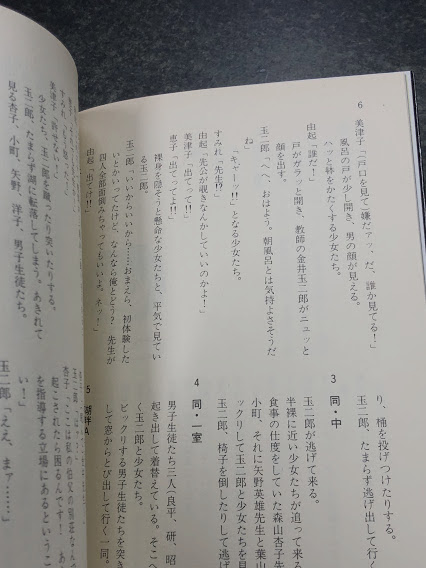 6
美津子「(戸口を見て)嫌だアッ、だ、誰か見てる!」
風呂の戸が少し開き、男の顔が見える。
ハッと体をかたくする少女たち。
由起「誰だ!」
戸がガラッと開き、教師の金井玉二郎がニュッと
顔を出す。
玉二郎「へへ、おはよう。朝風呂とは気持よさそうだ
ね」
「キャーッ!!」となる少女たち。
すみれ「先生!?」
由起「先公が覗きなんかしていいのかよ!」
美津子「出てって!!」
恵子「出てってよ!!」
裸身を隠そうと懸命な少女たちと、平気で見てい
る玉二郎。
玉二郎「いいからいいから……おまえら、初体験した
いとかいってたけど、なんなら俺とどう? 先生が
四人全部面倒みちゃってもいいよ。ネッ!」
由起「出てけ!!」
り、桶を投げつけたりする。
玉二郎、たまらず逃げ出して行く
3 同・中
玉二郎が逃げて来る。
半裸に近い少女たちが追って来る
食事の仕度をしていた森山杏子先
小町、それに矢野英雄先生と葉山
ックリして玉二郎と少女たちを見
玉二郎、椅子を倒したりして逃げ
4 同・一室
男子生徒たち三人、良平、研、昭
起き出して着替えている。そこへ
く玉二郎と少女たち。
ビックリする男子生徒たちを突き
して窓からとび出して行く一同。
5 湖畔A
少女たち、玉二郎を蹴ったり突いたりする。
玉二郎、たまらず湖に転落してしまう。あきれて
見る杏子、小町、矢野、洋子、男子生徒たち。
起こされたら困るんです!
を指導する立場にあるというこ
い!」
玉二郎「ええ、まァ……」